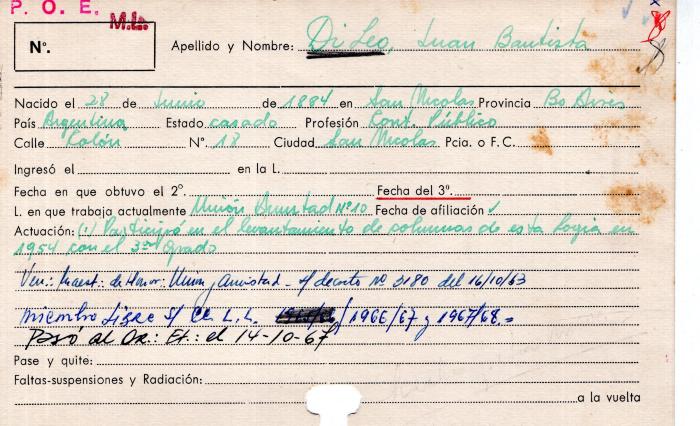 P. O. E.
M.L.
N°.
Apellido y Nombre: Di Leo, Juan Bautista
Nacido el 28 de Junio de 1884 en San Nicolas Provincia Bs Aires
País Argentina Estado casado Profesión Cont. Público
Calle Colón N°. 18 Ciudad San Nicolas Pcia. o F.C.
Ingresó el en la L.
Fecha en que obtuvo el 2°. Fecha del 3°.
L. en que trabaja actualmente Unión Amistad N°10 Fecha de afiliación
Actuación: (1) Participó en el levantamiento de columnas de esta Logia en
1954 con el 3er grado
Ven.: Maest.: de Honor: Unión y Amistad - s/ decreto N° 2180 del 16/10/63
Miembro Libre S/ L.L. / 1966/67 y 1967/68.=
Pasó al Or.: Et.: el 14-10-67
Pase y quite:
Faltas-suspensiones y Radiación:
a la vuelta